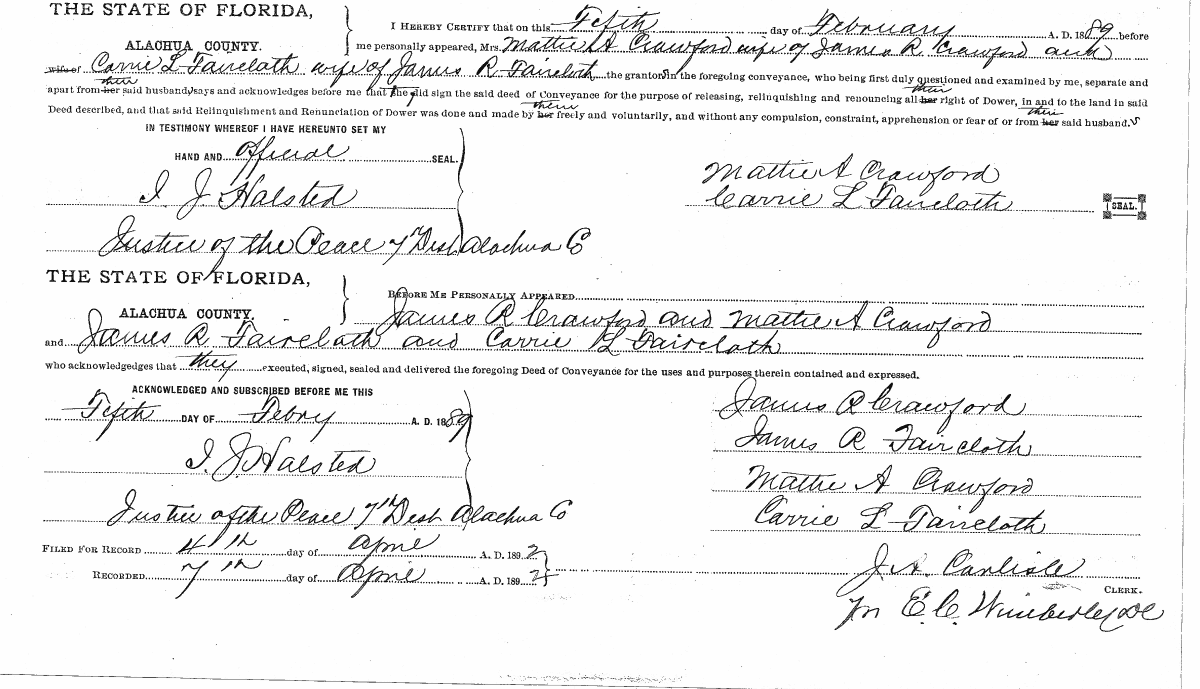 THE STATE OF FLORIDA,
ALACHUA COUNTY.
I HEREBY CERTIFY that on this Fifth day of February A. D. 1889 before
me personally appeared, Mrs. Mattie A Crawford wife of James R. Crawford and
wife of Carrie L Faircloth wife of James R. Faircloth the grantors in the foregoing conveyance, who being first duly questioned and examined by me, separate and
apart from her their said husbands, says and acknowledges before me that they did sign the said deed of Conveyance for the purpose of releasing, relinquishing and renouncing all her their right of Dower, in and to the land in said
Deed described, and that said Relinquishment and Renunciation of Dower was done and made by her them freely and voluntarily, and without any compulsion, constraint, apprehension or fear of or from her their said husband.s
IN TESTIMONY WHEREOF I HAVE HEREUNTO SET MY
HAND AND official SEAL.
I. J. Halsted
Justice of the Peace 7th Dist Alachua Co
Mattie A Crawford
Carrie L Faircloth
SEAL.
THE STATE OF FLORIDA,
ALACHUA COUNTY.
BEFORE ME PERSONALLY APPEARED
James R Crawford and Mattie A Crawford
and James R Faircloth and Carrie L Faircloth
who acknowledgedges that they executed, signed, sealed and delivered the foregoing Deed of Conveyance for the uses and purposes therein contained and expressed.
ACKNOWLEDGED AND SUBSCRIBED BEFORE ME THIS
Fifth DAY OF Febry A. D. 1889
I. J. Halsted
Justice of the Peace 7th Dist Alachua Co
James R Crawford
James R Faircloth
Mattie A Crawford
Carrie L Faircloth
FILED FOR RECORD 4th day of April A. D. 1892
RECORDED 7th day of April A. D. 1892
J. A. Carlisle
CLERK.
Pr E. C. Wimberley DC